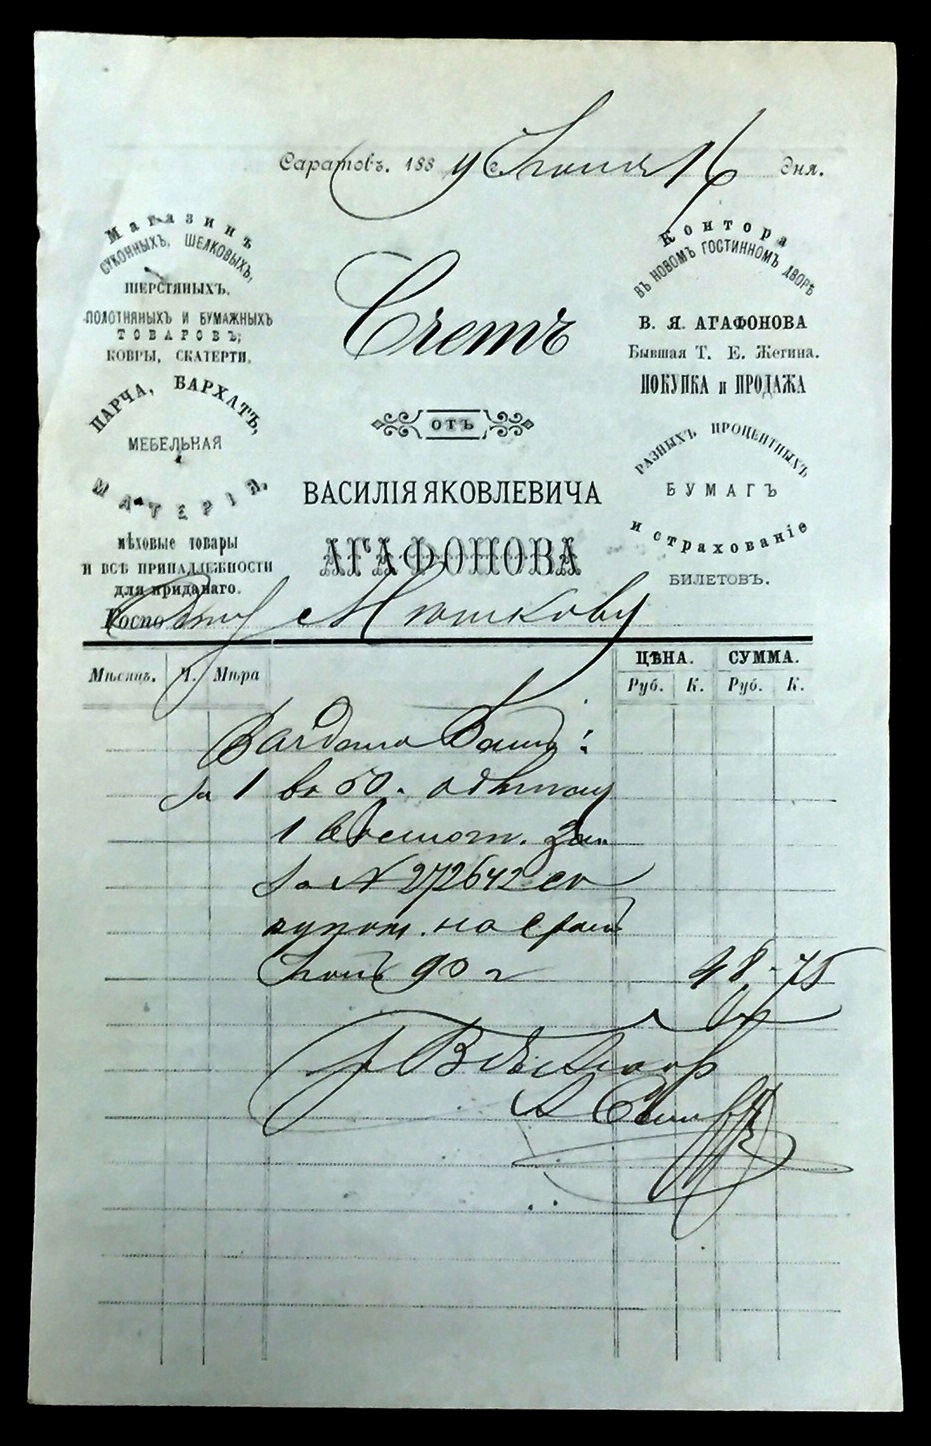 Саратовъ. 1889 г. Июня 16 дня.
Магазинъ
суконныхъ, шелковыхъ,
шерстяныхъ,
полотняныхъ и бумажныхъ
товаровъ;
ковры, скатерти,
парча, бархатъ,
мебельная
матерія,
мѣховые товары
и всѣ принадлежности
для приданаго.
Счетъ
отъ
ВАСИЛІЯ ЯКОВЛЕВИЧА
АГАФОНОВА
Контора
въ новомъ гостинномъ дворѣ
В. Я. АГАФОНОВА
Бывшая Т. Е. Жегина.
ПОКУПКА и ПРОДАЖА
разныхъ процентныхъ
БУМАГЪ
и страхованіе
БИЛЕТОВЪ.
Господину Мюшкову
Мѣсяцъ. Ч. Мѣра ЦѢНА. СУММА.
Руб. К. Руб. К.
За 1 во 50.
1
За № 272642 со
купон. на срокъ
Июнь 90 г 48-75